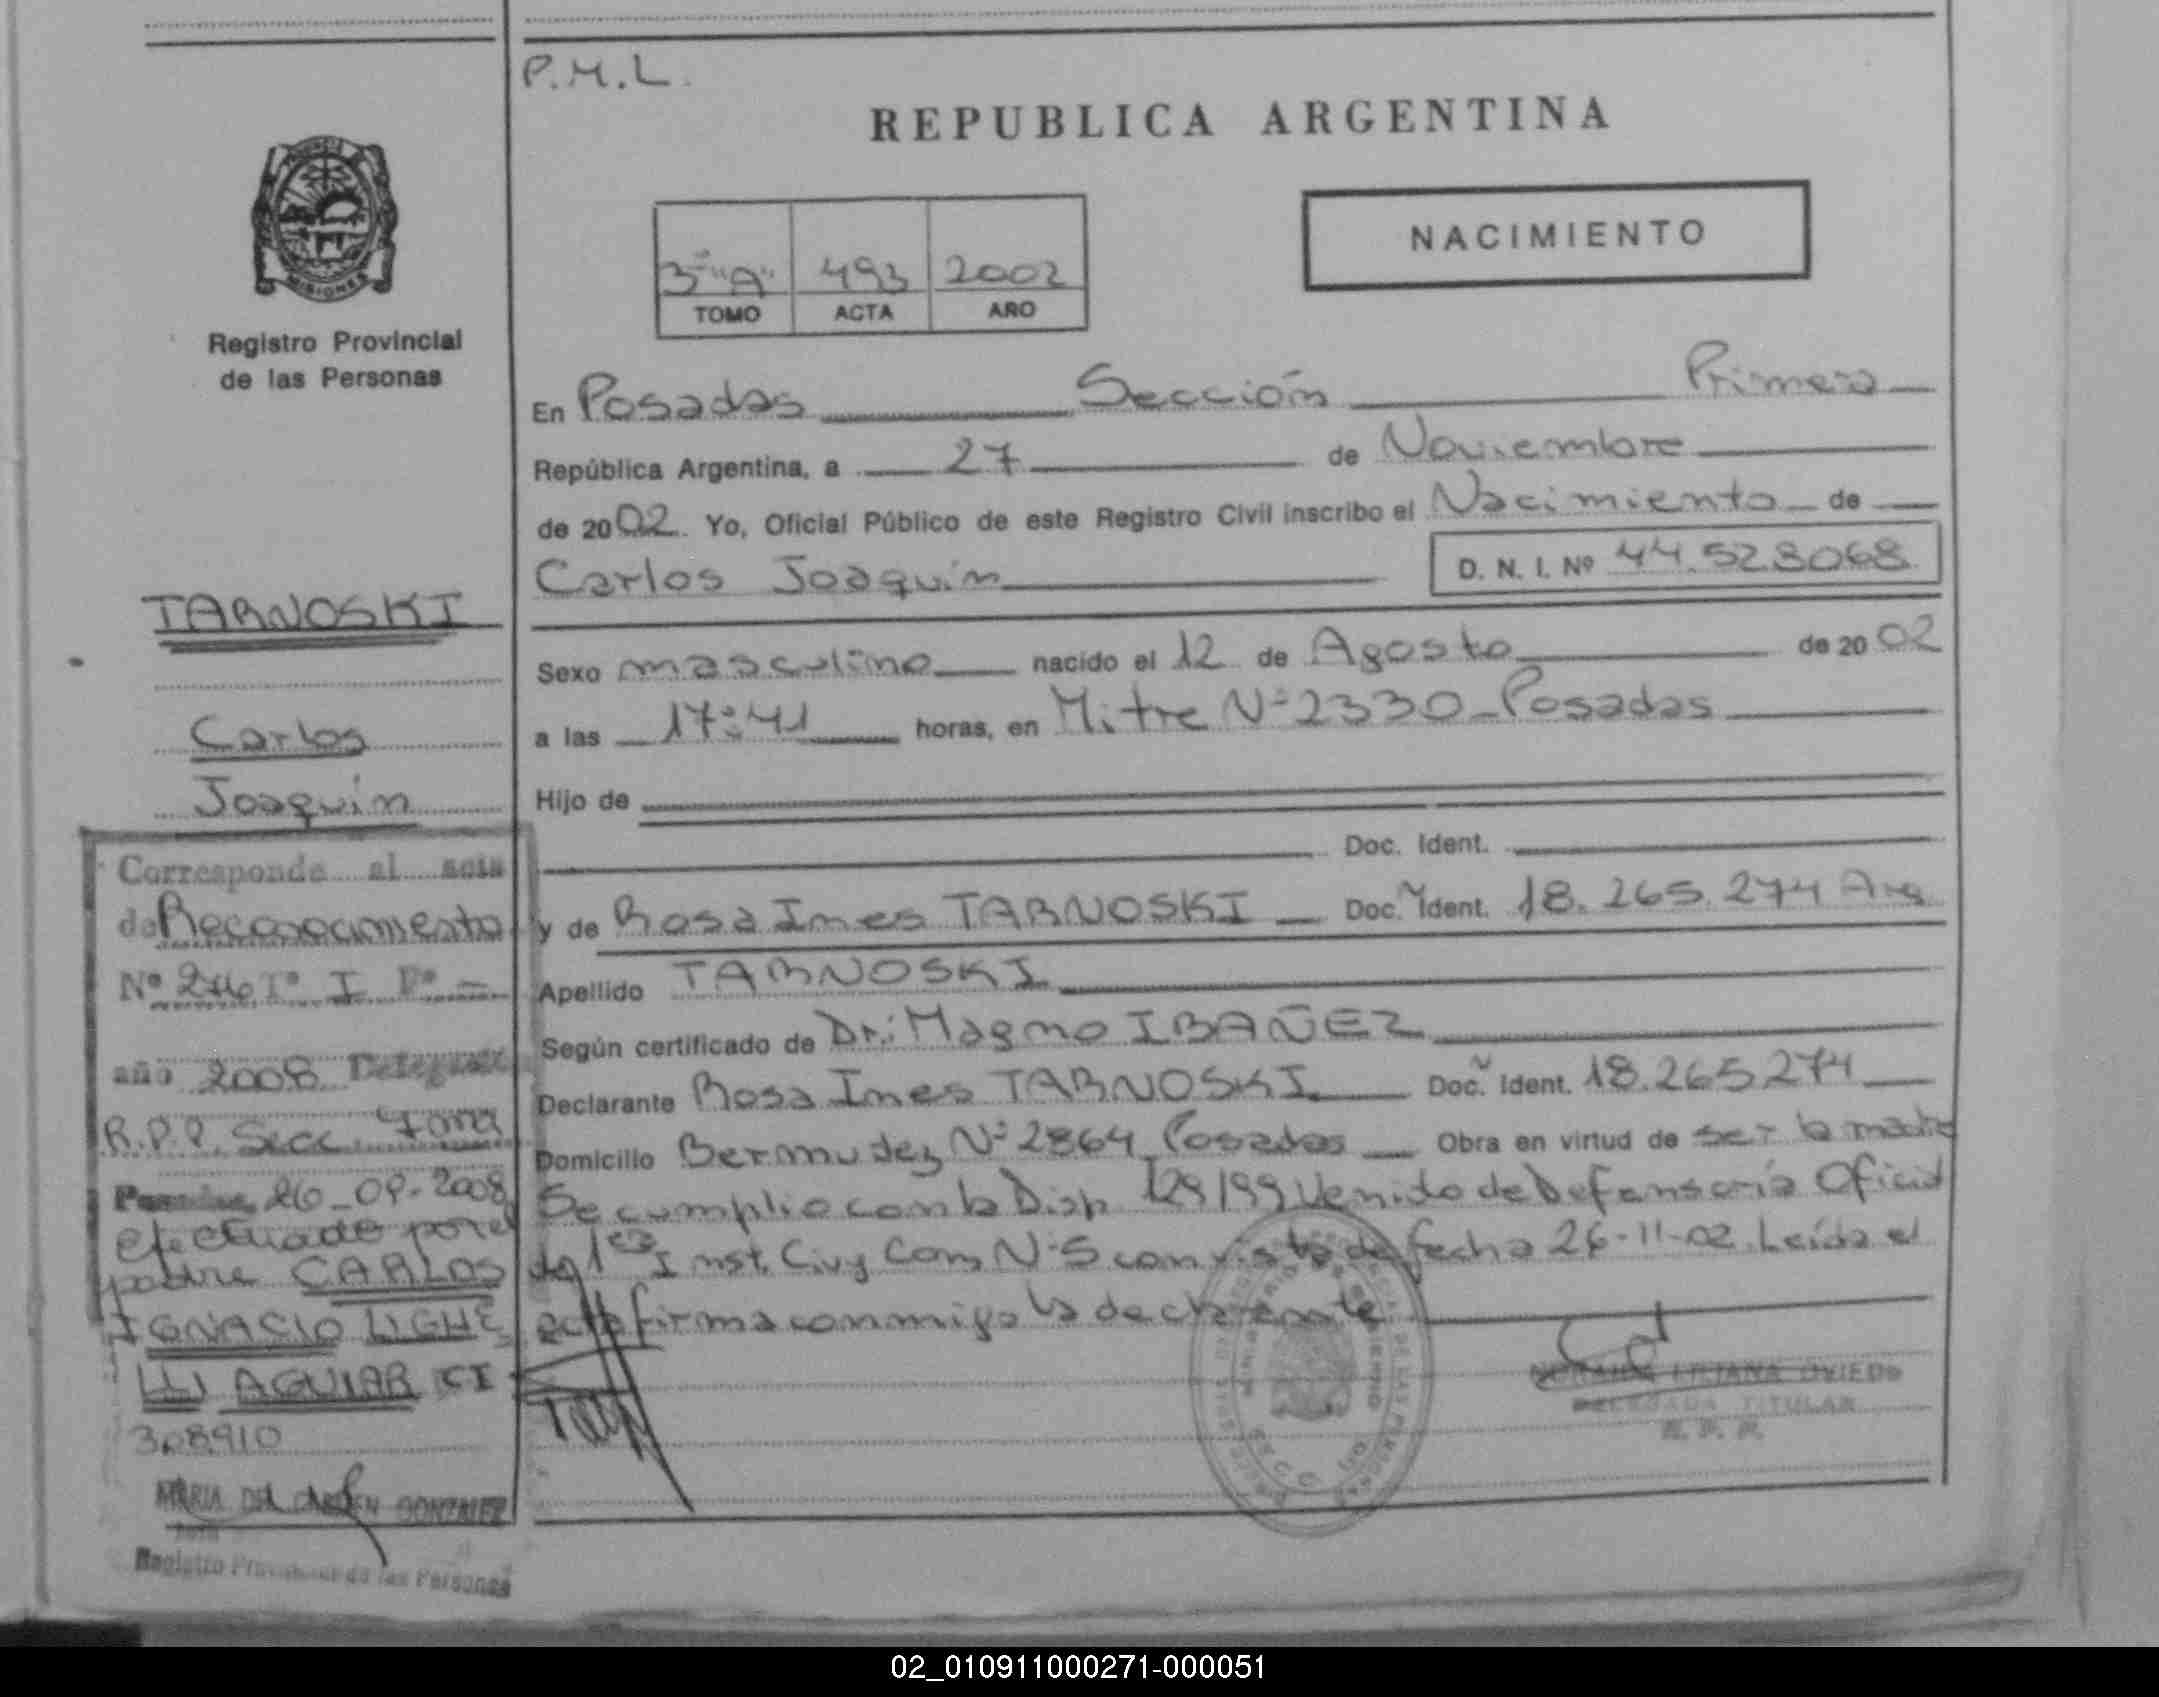 P.M.L.
REPUBLICA ARGENTINA
MISIONES
Registro Provincial
de las Personas
3º "A" 493 2002
TOMO ACTA AÑO
NACIMIENTO
En Posadas Sección Primera
República Argentina, a 27 de Noviembre
de 2002. Yo, Oficial Público de este Registro Civil inscribo el Nacimiento de
Carlos Joaquín D. N. I. Nº 44.528068
Sexo masculino nacido el 12 de Agosto de 2002
a las 17:41 horas, en Mitre Nº 2330 Posadas
Hijo de
Doc. Ident.
y de Rosa Ines TARNOSKI Doc. Ident. 18.265.274 Arg
Apellido TARNOSKI
Según certificado de Dr: Magno IBAÑEZ
Declarante Rosa Ines TARNOSKI Doc. Ident. 18.265274
Domicilio Bermudez Nº 2864 Posadas Obra en virtud de ser la madre
Se cumplio con la Disp 129/99 Venido de Defensoría Oficial
de 1era Inst. Civ y Com Nº 5 con vista de fecha 26-11-02. Leída el
acta firma conmigo la declarante
LILIANA OVIEDO
DELEGADA TITULAR
R. P. P.
TARNOSKI
Carlos
Joaquín
Corresponde al acta
de Reconocimiento
Nº 246 Tº I Fº -
año 2008
R.P.P. Secc.
26-09-2008
efectuado por el
padre CARLOS
IGNACIO LIGHE
LLI AGUIAR CI
308910
MARIA DEL CARMEN GONZALEZ
Registro Provincial de las Personas
02_010911000271-000051